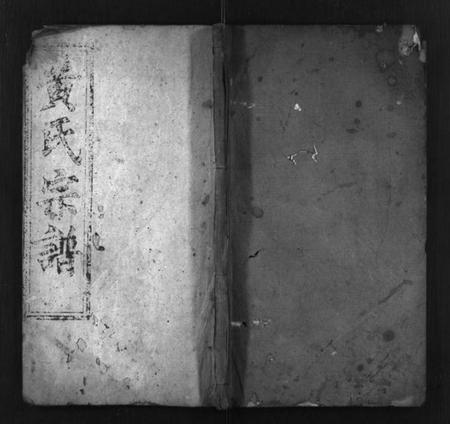 黃氏宗譜